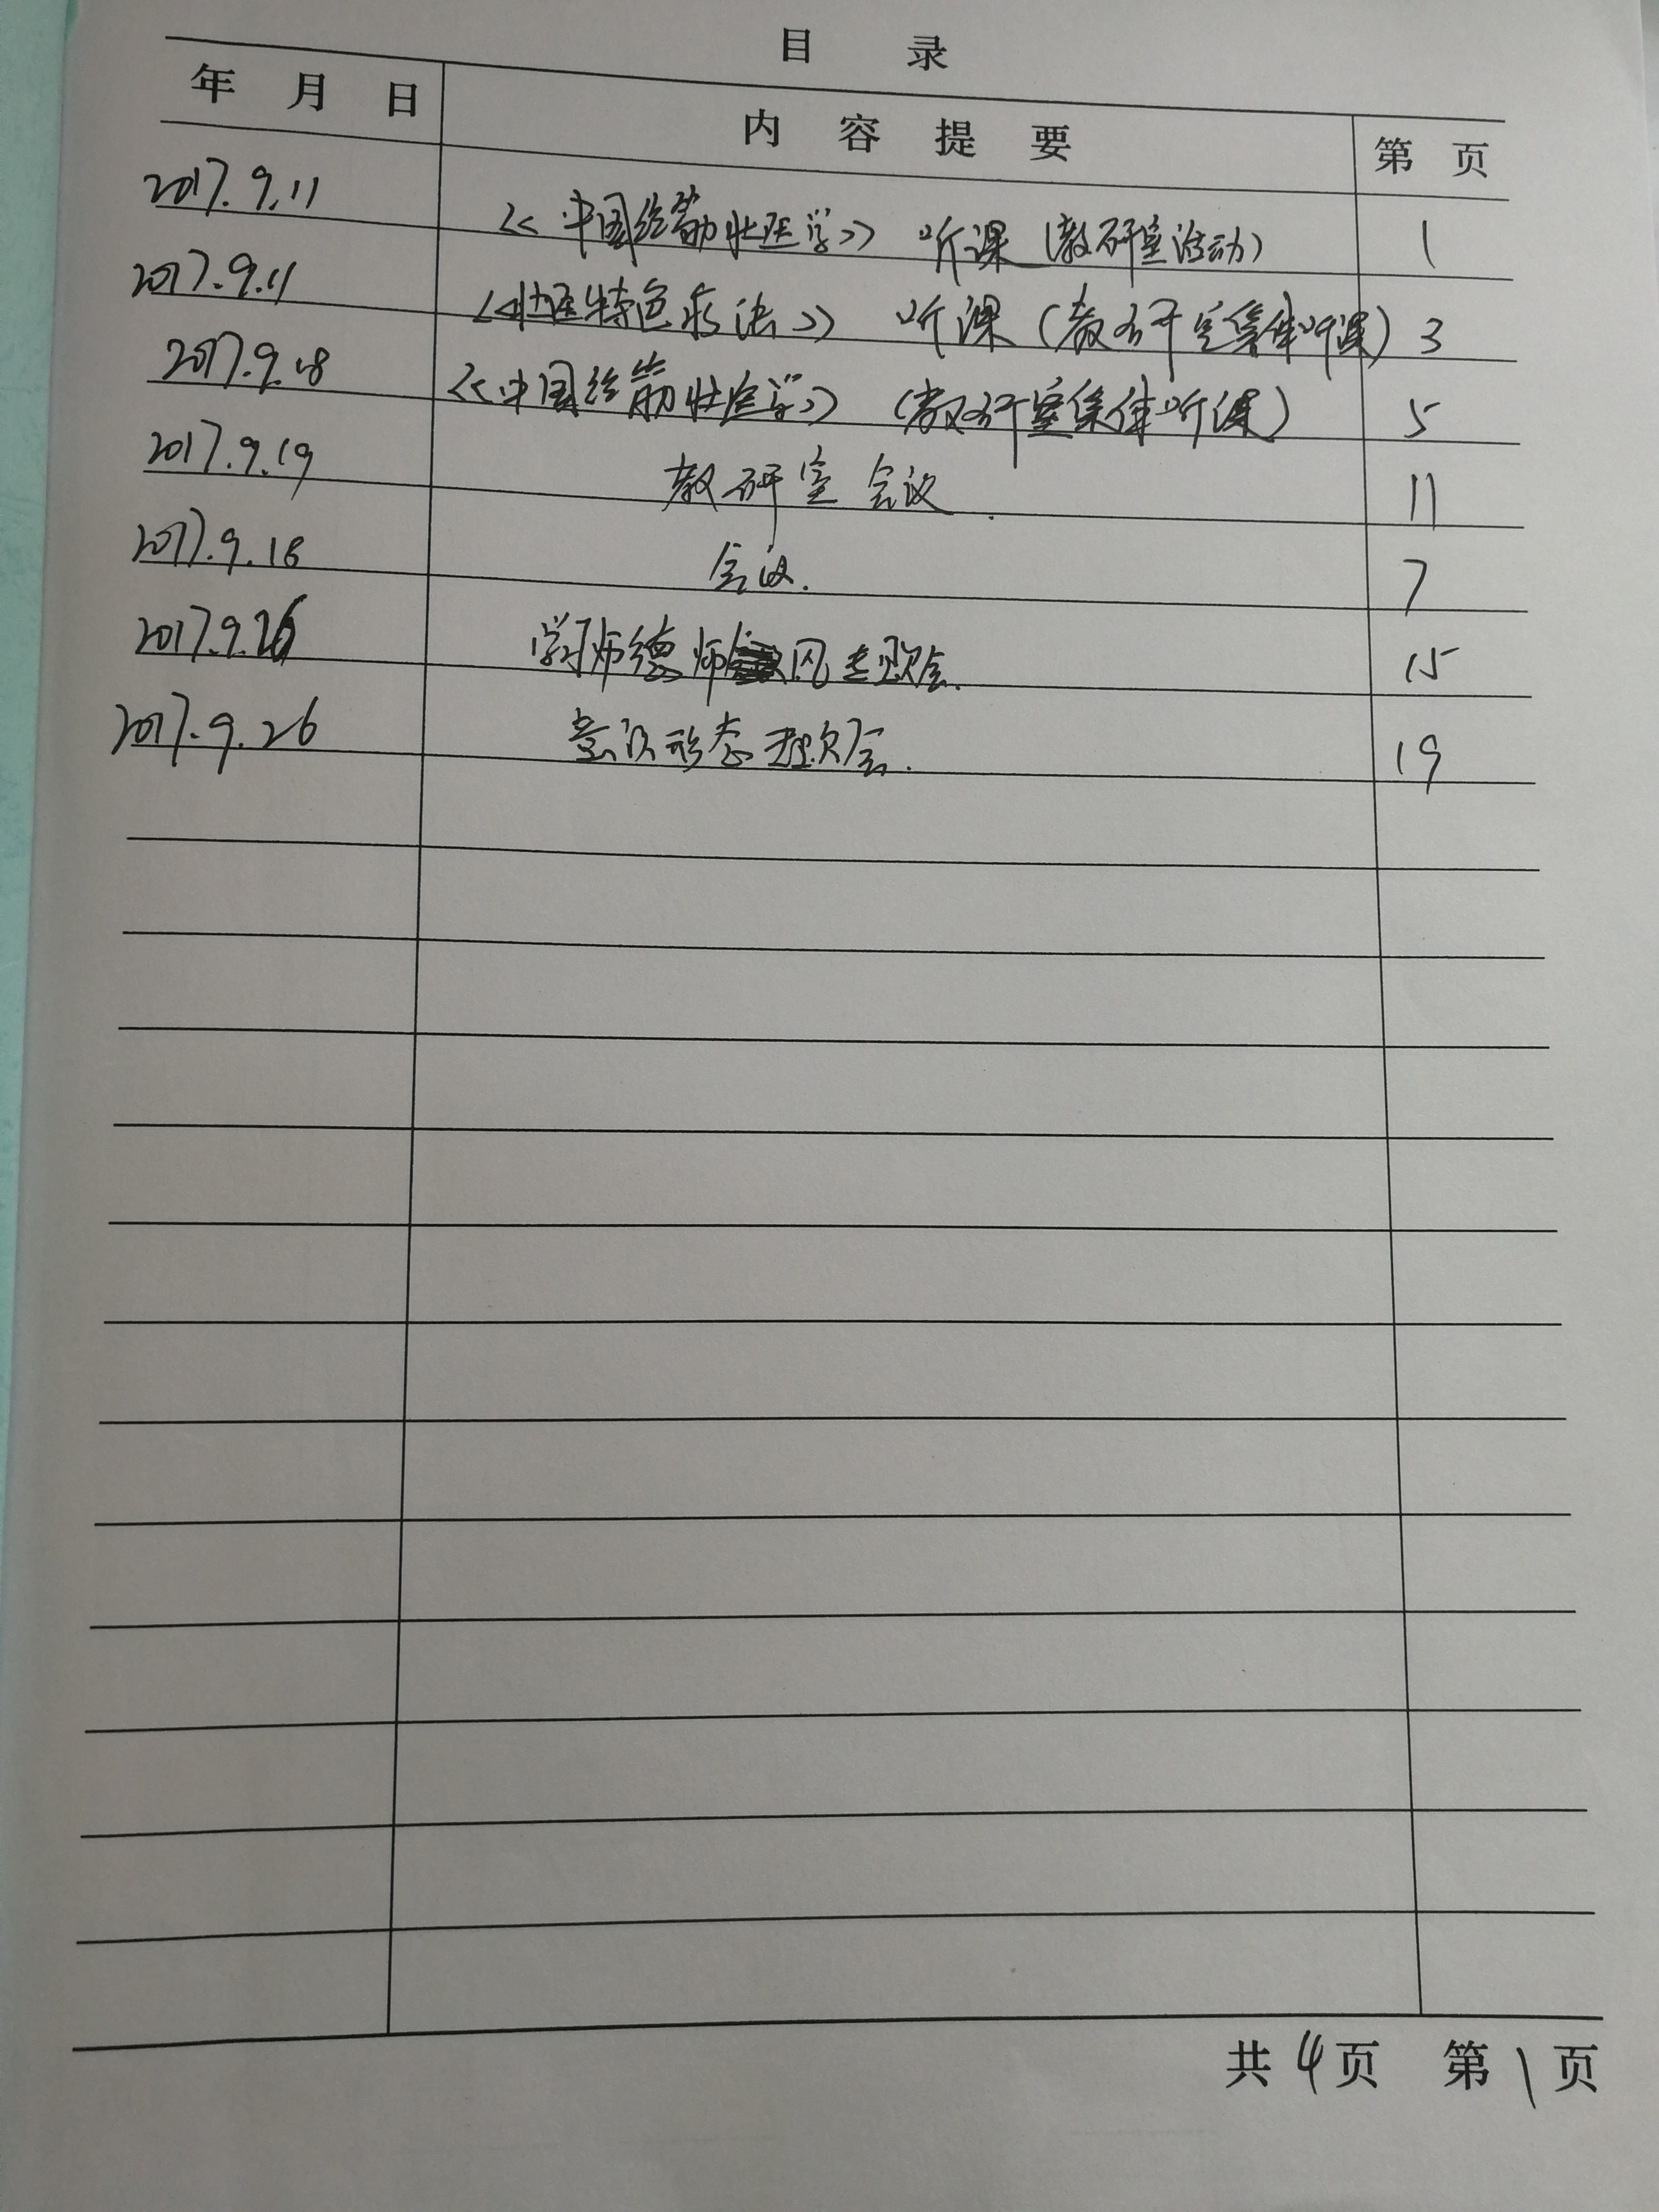 目 录
年 月 日 内 容 提 要 第 页
2017.9.11 《中国经筋壮医学》 听课（教研室活动） 1
2017.9.11 《壮医特色疗法》 听课（教研室集体听课） 3
2017.9.18 《中国经筋壮医学》 （教研室集体听课） 5
2017.9.19 教研室会议. 11
2017.9.18 会议. 7
2017.9.26 学习师德师风主题会. 15
2017.9.26 意识形态主题会. 19
共4页 第1页